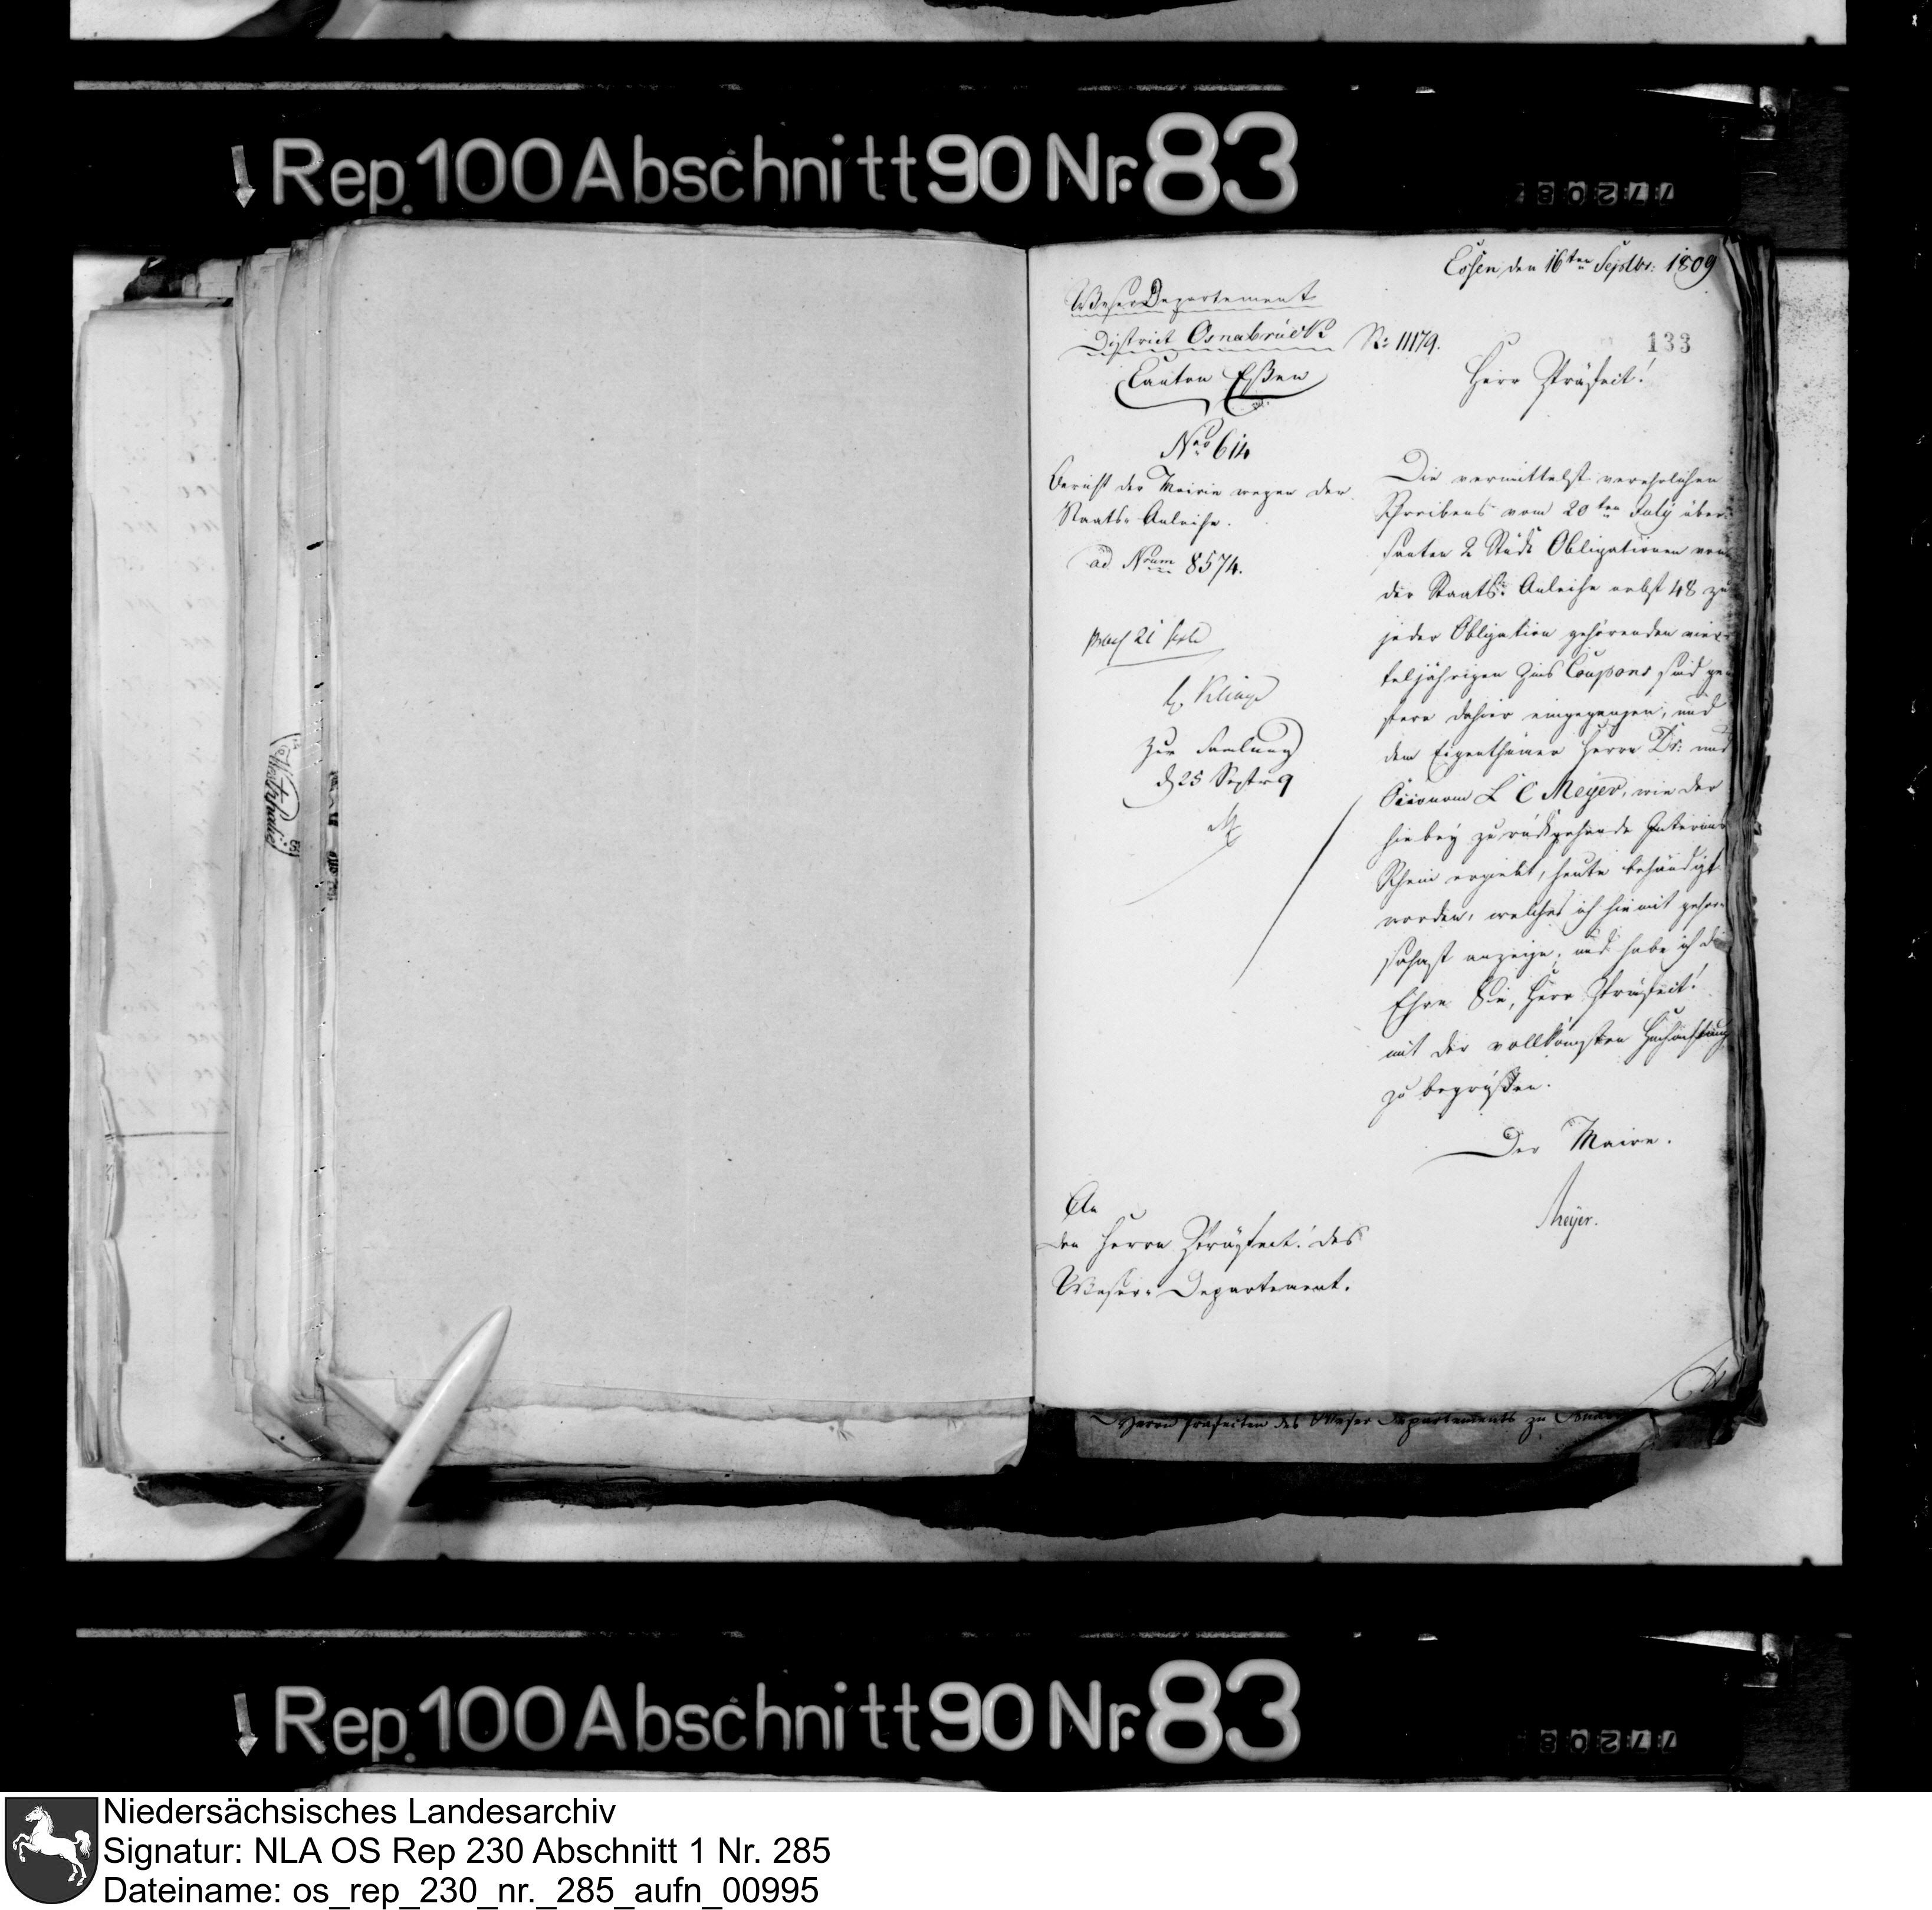 Rep. 100 Abschnitt 90 Nr. 83
77208
Essen den 16ten Septbr: 1809
Weser Departement
District Osnabrück
Canton Eßen
N: 11179.
133
Herr Präfect!
Nro 614
Bericht des Mairie wegen der
Staats-Anleihe.
ad Num 8574.
21
H. Klinge
Zur Samlung
d 25 Septr 9
Die vermittelst verehrlichen
Schreibens vom 20ten July über-
santen 2 Stück Obligationen von
der Staats-Anleihe nebst 48 zu
jeder Obligation gehörenden vier-
teljährigen Zins Coupons sind ge-
stern dahier eingegangen, und
dem Eigenthümer Herrn Dr: und
L C Meyer, wie der
hiebey zurückgehende Interims
Schein ergiebt, heute behändigt
worden, welches ich hiemit gehor-
samst anzeige, und habe ich die
Ehre Sie, Herr Präfect!
mit der vollkomsten Hochachtung
zu begrüßen.
Der Maire.
Meyer.
An
den Herrn Präfect des
Weser-Departement.
Herrn Präfecten des Weser Departements zu
Rep. 100 Abschnitt 90 Nr. 83
77208
Niedersächsisches Landesarchiv
Signatur: NLA OS Rep 230 Abschnitt 1 Nr. 285
Dateiname: os_rep_230_nr._285_aufn_00995